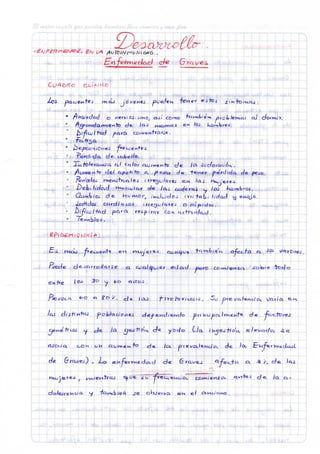 Desarrollo.
ENFERMEDADES EN LA AUTOINMUNIDAD.
Enfermedad de Graves
CUADRO CLÍNICO
Los pacientes más jóvenes pueden tener estos síntomas
• Ansiedad o nerviosismo, así como también problemas al dormir.
• Agrandamiento de las mamas en los hombres.
• Dificultad para concentrarse.
• Fatiga
• Deposiciones frecuentes
• Pérdida de cabello.
• Intolerancia al calor aumento de la sudoración.
• Aumento del apetito a pesar de tener pérdida de peso.
• Periodos menstruales irregulares en las mujeres
• Debilidad muscular de las caderas y los hombros.
• Cambios de humor, incluidos irritabilidad y enojo.
• Latidos cardiacos irregulares o rápidos.
• Dificultad para respirar con actividad.
• Temblor.
EPIDEMIOLOGÍA:
Es más frecuente en mujeres aunque también afecta a los varones.
Puede desarrollarse a cualquier edad pero comienza sobre todo
entre los 30 y 60 años.
60 a 80%. de las tirotoxicosis. Su prevalencia varía en
las distintas poblaciones dependiendo principalmente de factores
genéticos y de la ingestión de yodo (la ingestión elevada se
asocia con un aumento de la prevalencia de la Enfermedad
de Graves). La enfermedad de Graves afecta a %. de las
mujeres, mientras que su frecuencia comienza antes de la a-
dolescencia y también se observa en el anciano.